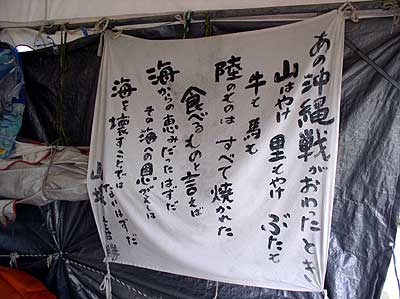 あの沖縄戦がおわったとき
山はやけ 里もやけ ぶたも
牛も 馬も
陸のものは すべて焼かれた
食べるものと言えば
海からの恵みだったはずだ
その海への恩がえしは
海を壊すことでは
ないはずだ
山城